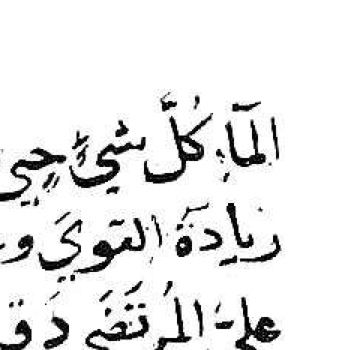 المآء كُلَّ شيءٍ حيٍ
زيادَةَ التقويَ و
عليَ المُرتَضَى دَ